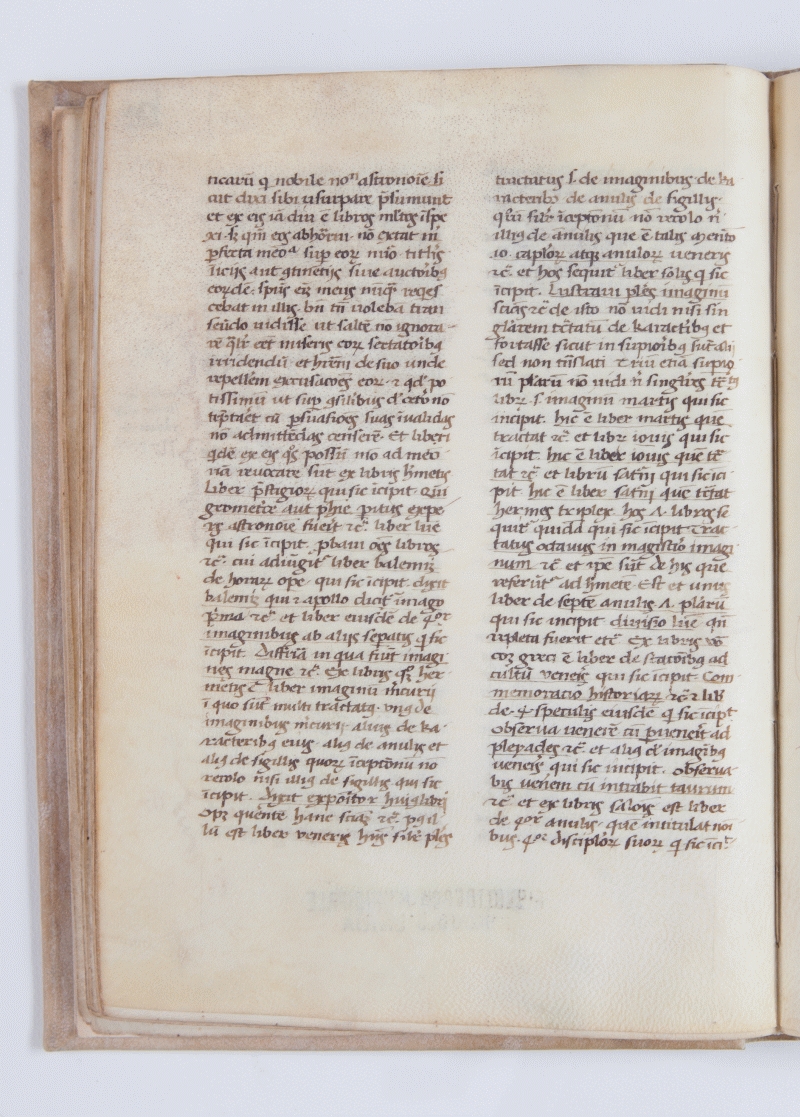 ticarū q̄ nobile noⁿ astronoīe s̄i
cut dixi sibi usurpare p̄sumunt
et ex eis iā diu ē libros ml̄tos īspe
xi · s̄ qm̄ eos abhorrui · nō extat m̄
ꝑfecta meōᵃ suꝑ eoꝝ nūo titl̓is
īicijs aut ꝯtinetijs siue auctoribꝫ
eorūdē · sp̄us em̄ meus nūqꝫ reqes
cebat in illis · bn̄ tn̄ uolebā tran
seūdo uidisse ut saltē nō ignora
rē qͣlr̄ eēt miseris eoꝝ sectatoribꝫ
irridendū · et hr̄em de suo unde
repellem excusacōes eoꝝ · ⁊ qd̓ po
tissimū ē ut suꝑ ꝯsilibus d̓ cet̓o nō
tēptaret cū ꝑsuasiōes suas īualidas
nō admittēdas censerē · Et liberi
qdē ex eis qͦs possū nūo ad meō
riā reuocare sūt ex libris h̓metis
Liber p̄stigioꝝ qui sic īcipit · Qui
geometrie aut ph̄ie ꝑitus expe
rs astronoīe fuerit ⁊c̄ · liber lūe
qui sic īcipit · ꝓbaui oēs libros
⁊c̄ · cui adiūgit̓ liber balemis
de horaꝝ oꝑe · qui sic īcipit · dixit
balemis qui ⁊ apollo dicit̓ imago
p̄ma ⁊c̄ · et liber eiusdē de 4ᵒʳ
imaginibus ab alijs seꝑatis q̄ sic
īcipit · Differūt in qua fiūt imagi
nes magne ⁊c̄ · Ex libris qͦꝫ her
metis ē liber imaginū m̓curij
ī quo sūt multi tractatꝰ · vnꝰ de
imaginibus m̓curij · aliꝰ de ka
racteribꝫ eius · aliꝰ de anulis et
aliꝰ de sigillis quoꝝ īceptonū nō
recolo nisi illiꝰ de sigillis qui sic
īcipit · Dixit expositor huiꝰ libri
Opꝫ querente hanc sciaꝫ ⁊c̄ · pꝰ il
lū est liber veneris hn̄s sil̓r ples
tractatus s̄ de imaginibus · de ka
racteribꝫ de anulis de sigillis ·
qͦꝝ sil̓r īceptonū nō recolo n̄
illiꝰ de anulis que ē talis m̄entō
io caploꝝ atqꝫ anuloꝝ ueneris
⁊c̄ · et hos sequit̓ liber solis q̄ sic
īcipit · Lustraui ples imaginū
sciaꝫ ⁊c̄ de isto nō uidi nisi sin
glarem t̄ctatū de karactibꝫ et
fortasse sicut in supioibꝫ sūt alij
sed non trāslati
rū platū nō uidi n̄ singlr̓es t̄ctꝰ
libꝝ s̄ imaginū martis qui sic
incipit · hic ē liber martis quē
tractat ⁊c̄ · et libꝝ iouis qui sic
īcipit · hic ē liber iouis quē t̄c
tat ⁊c̄ · et librū sat̓ni qui sic ici
pit · hic ē liber sat̓ni quē t̄ctat
hermes triplex · hos · Λ · libros se
quit̓ quidā qui sic īcipit · Trac
tatus octauus in magistio imagi
num ⁊c̄ et ipē sūt de his que
referūt̓ ad h̓metē · Est et unus
liber de septē anulis · Λ · platū
qui sic incipit diuisio lūe qn̄
īpleta fuerit etc̄ · Ex libris v̓o
toꝫ greci ē liber de stacoibꝫ ad
cultū veneis qui sic īcipit Com
memoracio historiaꝝ ⁊c̄ ⁊ lib̓
de · 4 · speculis eiusdē q̄ sic īcipt
Obserua venerē cū ꝑuenerit ad
pleyades ⁊c̄ · et aliꝰ de imagibꝫ
veneris qui sic incipit · obserua
bis venerem cū intrabit taurum
⁊c̄ · et ex libris saloīs est liber
de 4ᵒʳ anulis · quē intitulat noi
bus · 4ᵒʳ disciploꝝ suoꝝ q̄ sic īci